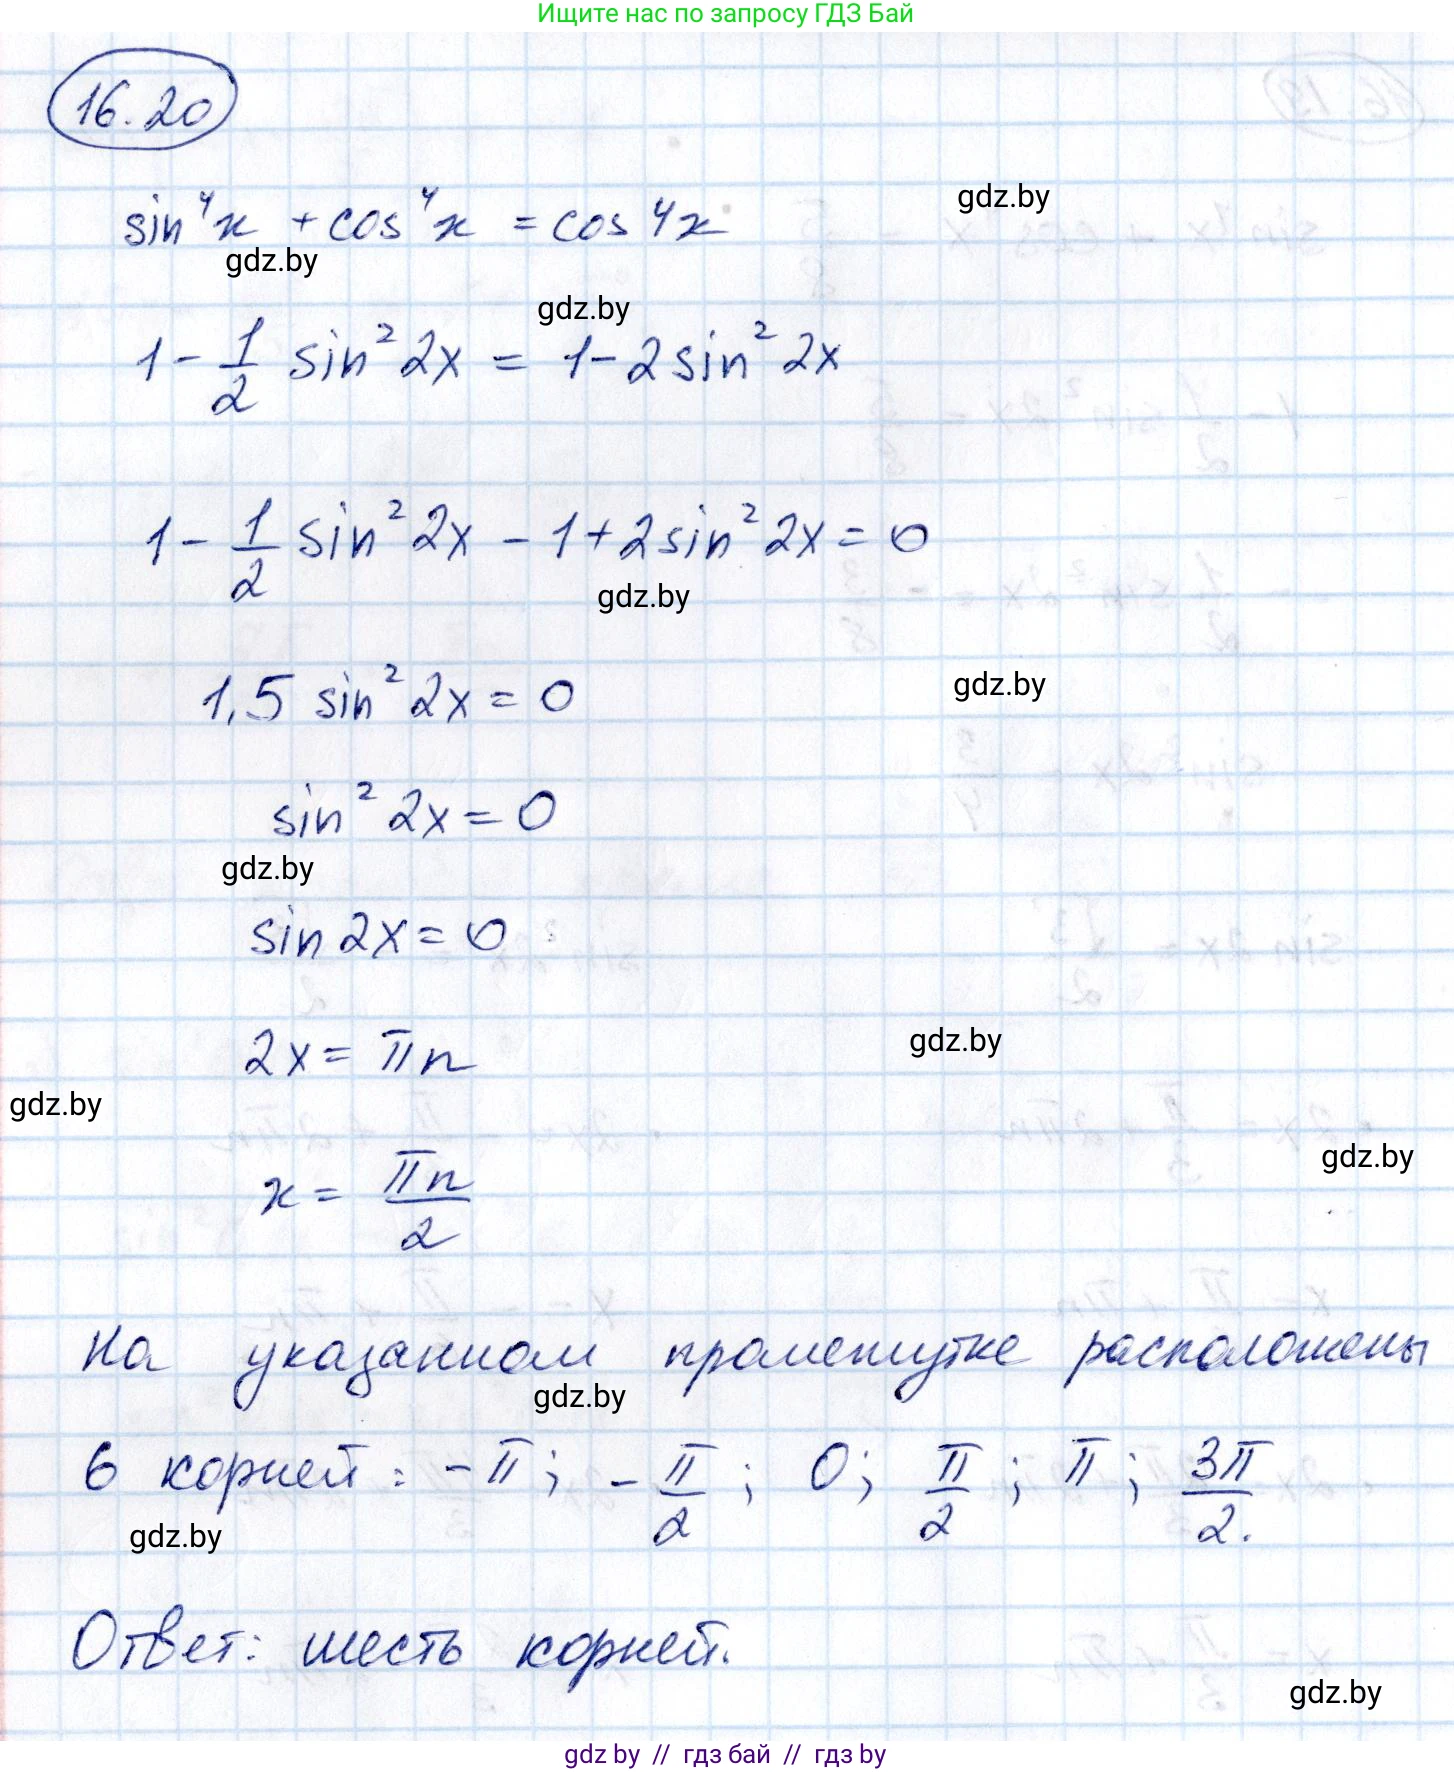 Ищите нас по запросу ГДЗ Бай
16.20
sin⁴x + cos⁴x = cos 4x
gdz.by
gdz.by
gdz.by
1 - 1/2 sin² 2x = 1 - 2 sin² 2x
1 - 1/2 sin² 2x - 1 + 2 sin² 2x = 0
gdz.by
1,5 sin² 2x = 0
gdz.by
sin² 2x = 0
gdz.by
sin 2x = 0
2x = πn
gdz.by
gdz.by
x = πn/2
gdz.by
На указанном промежутке расположены
gdz.by
6 корней: -π; -π/2; 0; π/2; π; 3π/2.
gdz.by
Ответ: шесть корней.
gdz.by
gdz by // гдз бай // гдз by